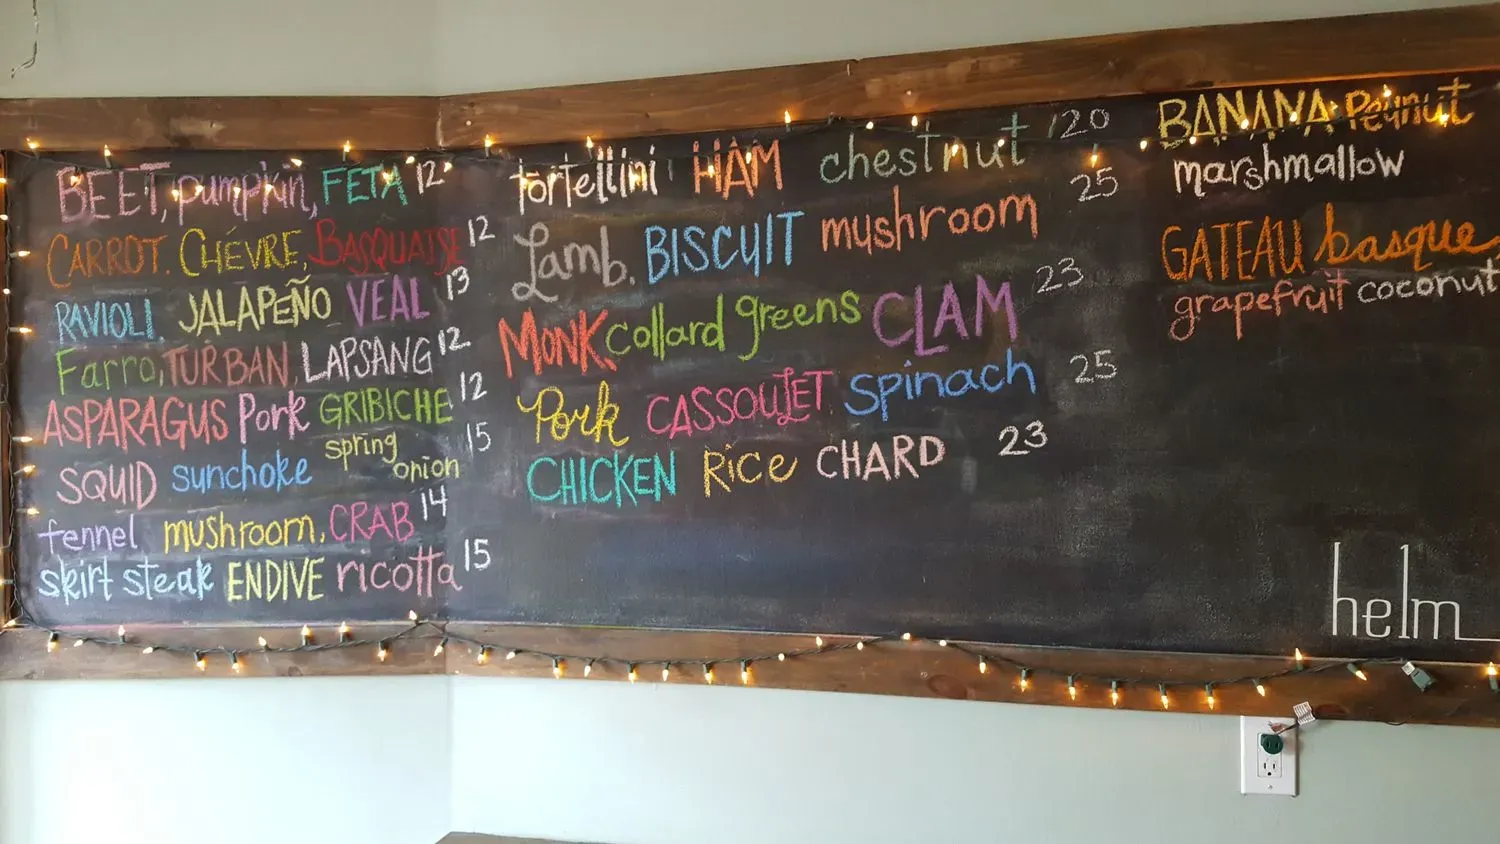 BEET, pumpkin, FETA 12
CARROT. CHÉVRE, BASQUAISE 12
RAVIOLI. JALAPEÑO VEAL 13
Farro, TURBAN, LAPSANG 12
ASPARAGUS Pork GRIBICHE 12
SQUID sunchoke spring onion 15
fennel mushroom, CRAB 14
skirt steak ENDIVE ricotta 15
tortellini HAM chestnut 20
Lamb. BISCUIT mushroom 25
MONK. collard greens CLAM 23
Pork CASSOULET spinach 25
CHICKEN Rice CHARD 23
BANANA Peanut
marshmallow
GATEAU basque
grapefruit coconut
helm